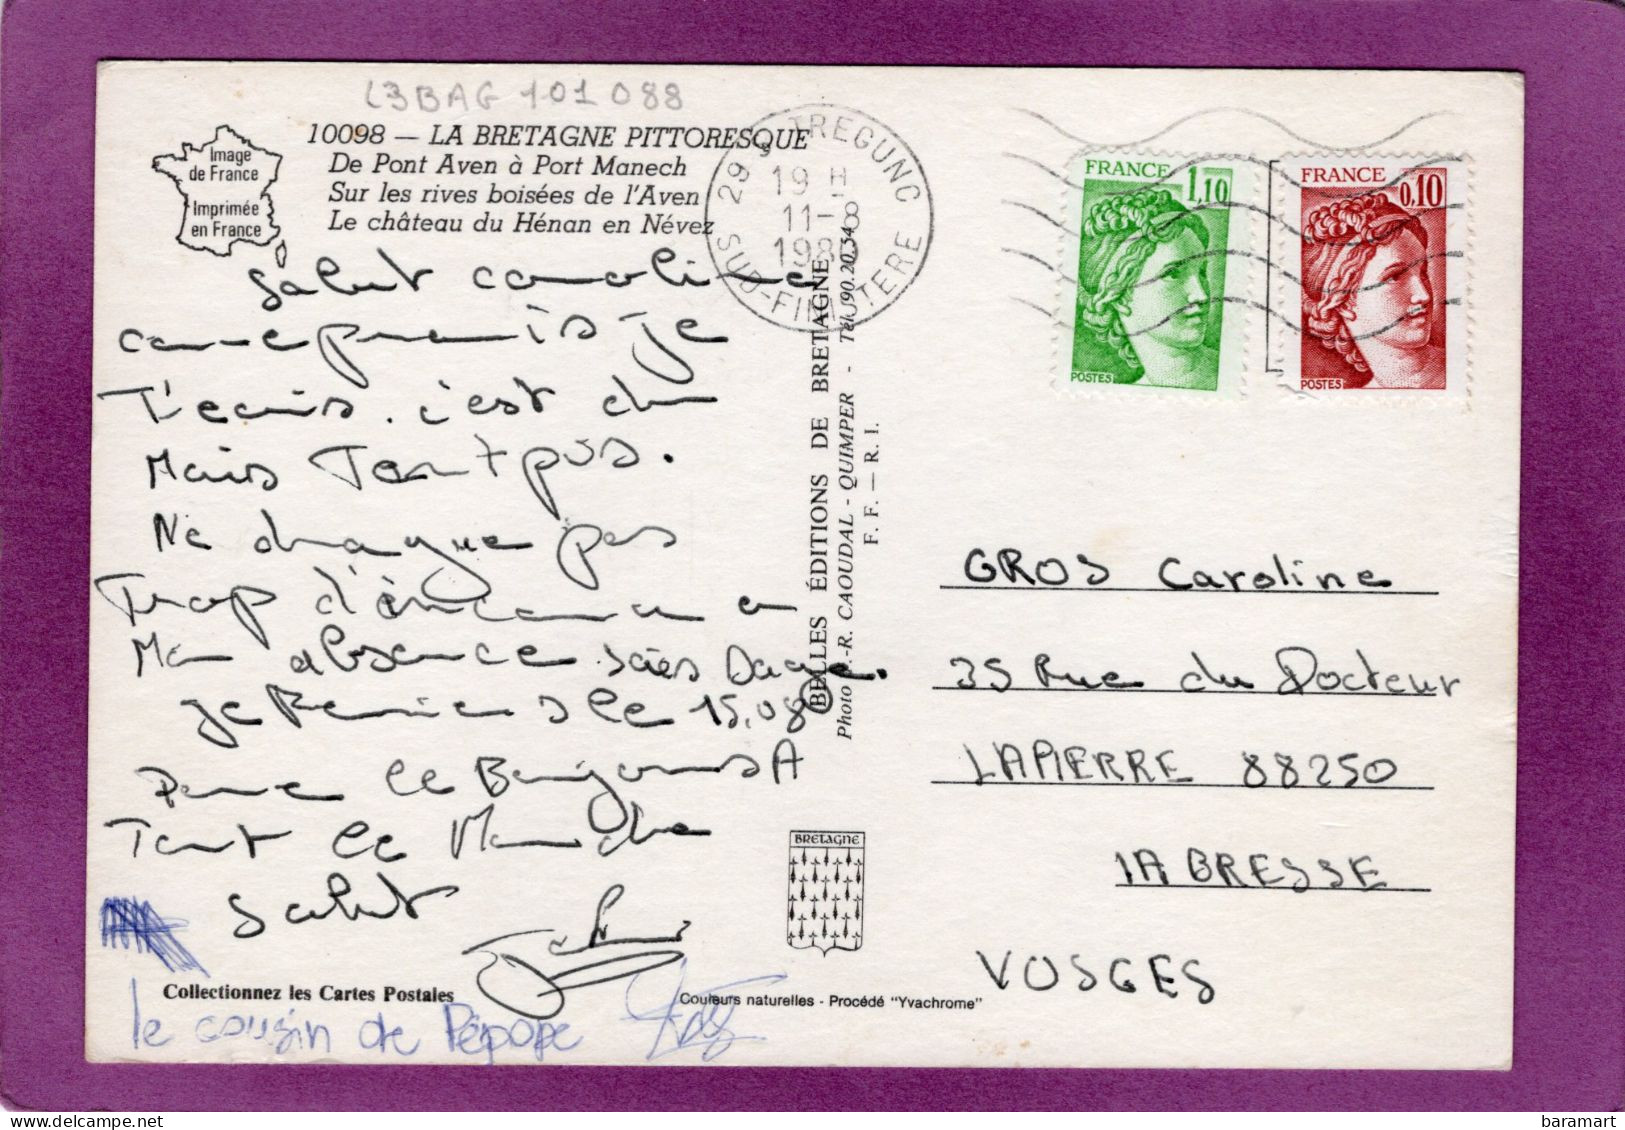 L3BAG 101 088
10098 — LA BRETAGNE PITTORESQUE
De Pont Aven à Port Manech
Sur les rives boisées de l'Aven
Le château du Hénan en Névez
Image
de France
Imprimée
en France
29 TREGUNC
19 H
11-8
1980
SUD-FINISTERE
FRANCE
1,10
POSTES
FRANCE
0,10
POSTES
Salut Caroline
comme promis je
T'écris. c'est dur
Mais Tant pis.
Ne drague pas
Trop
Mon absence. sois sage.
je Reviens le 15.08
Tout le Monde
Salut
le cousin de Pépope
Collectionnez les Cartes Postales
Couleurs naturelles - Procédé "Yvachrome"
BRETAGNE
BELLES ÉDITIONS DE BRETAGNE
Photo J.-R. CAOUDAL - QUIMPER - Tél. 90.20.34
F. F. — R. I.
GROS Caroline
35 Rue du Docteur
LAPIERRE 88250
LA BRESSE
VOSGES
baramart